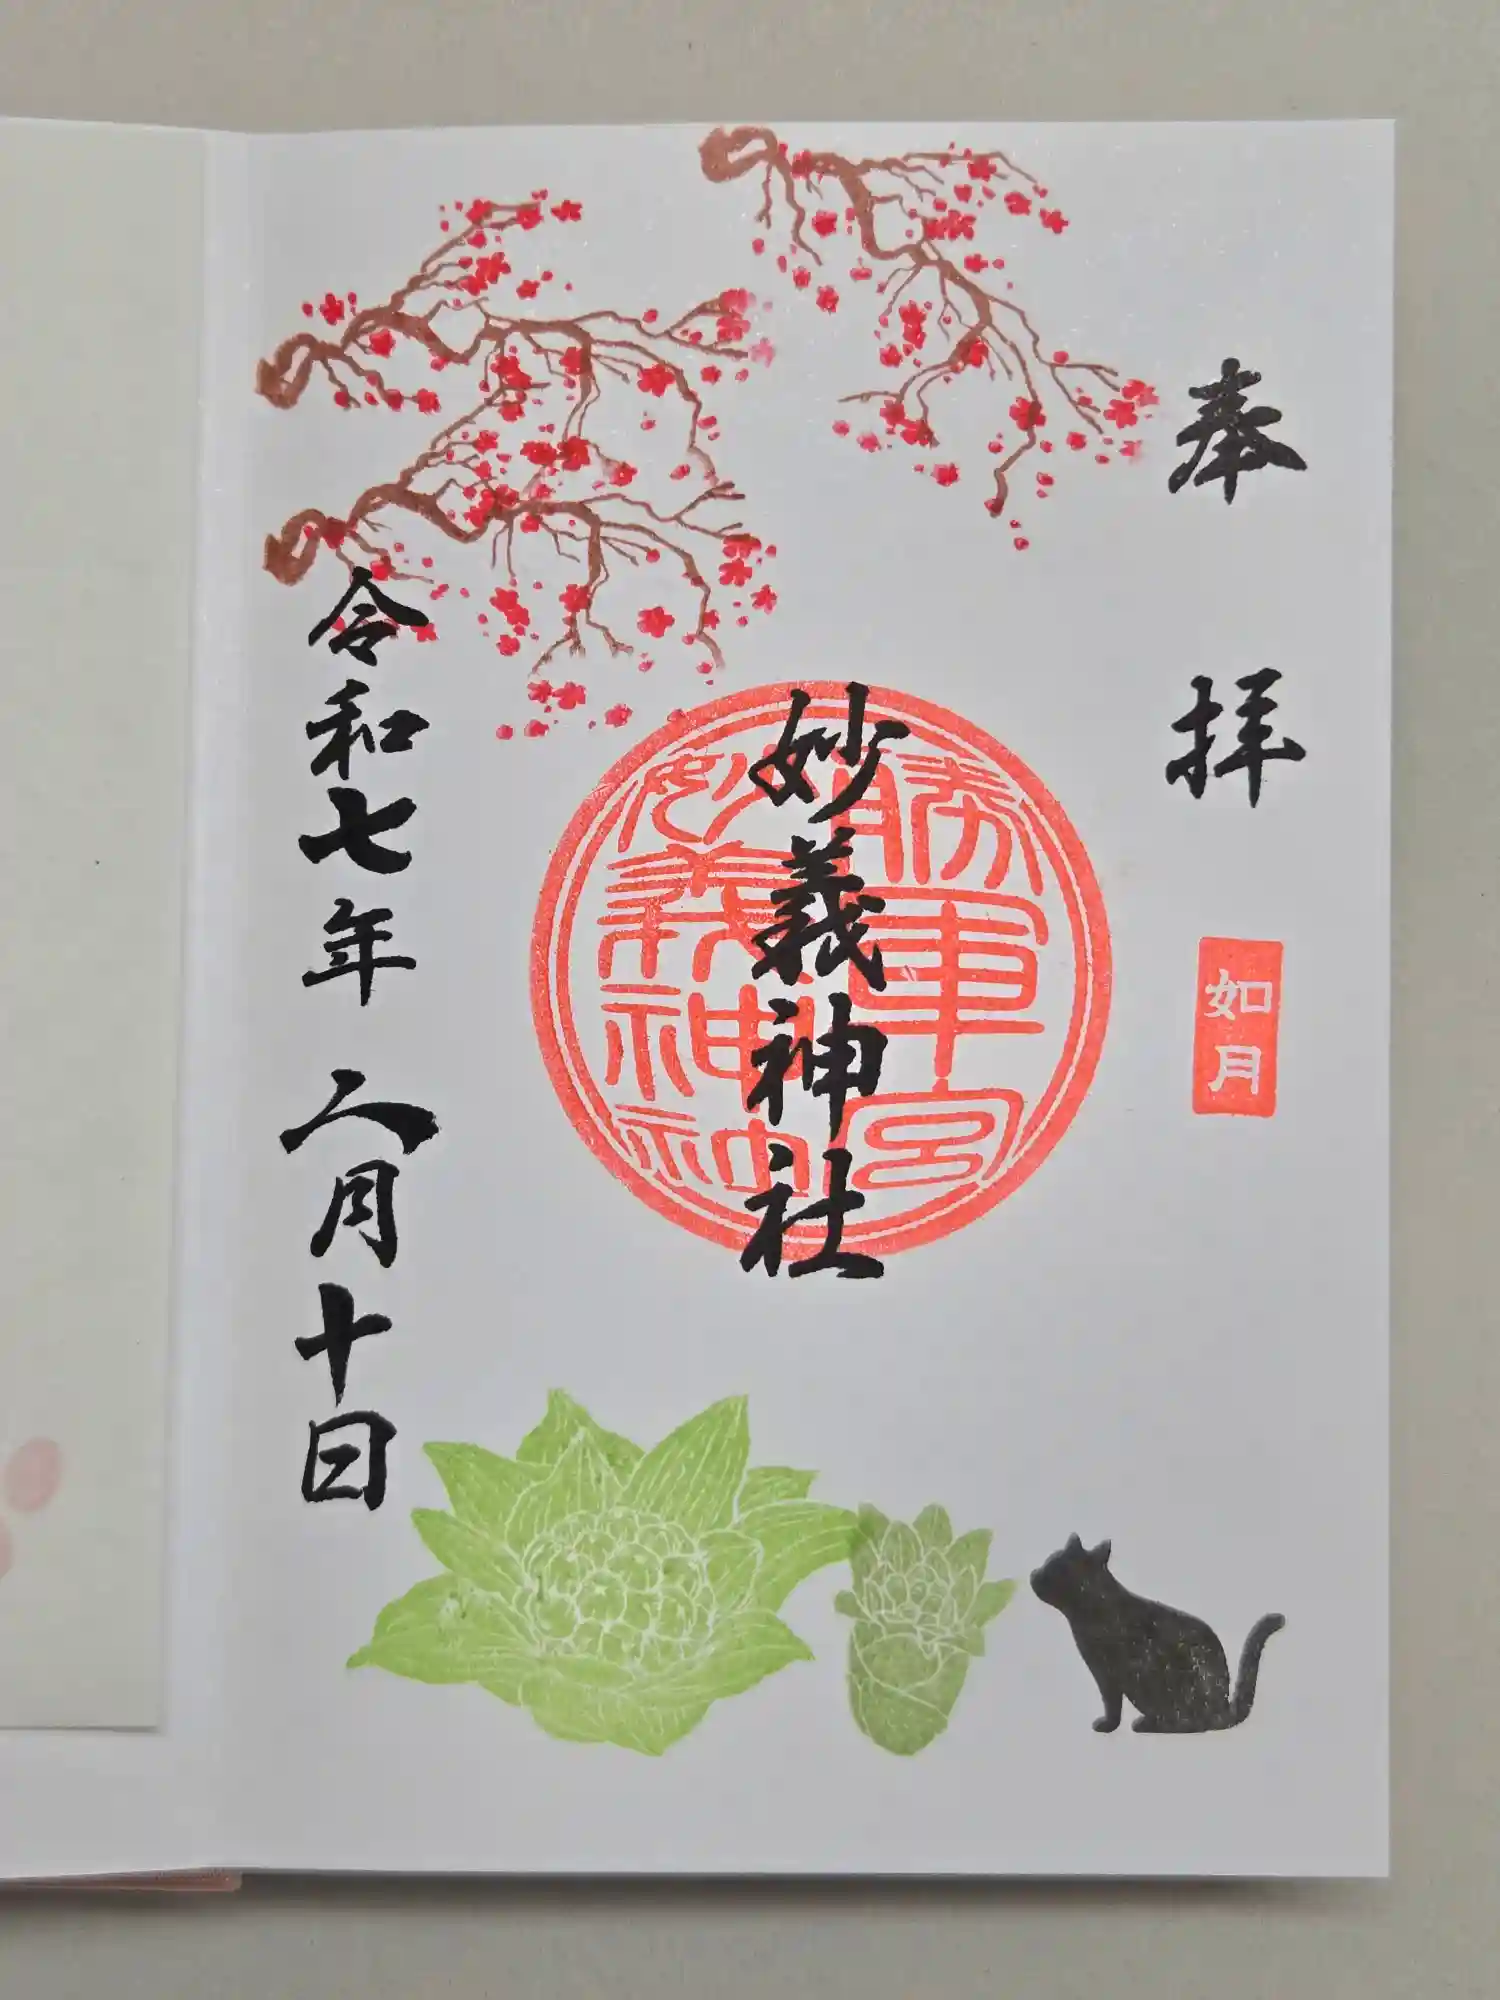 奉拝
如月
妙義神社
勝軍宮
妙義神社
令和七年 二月十日